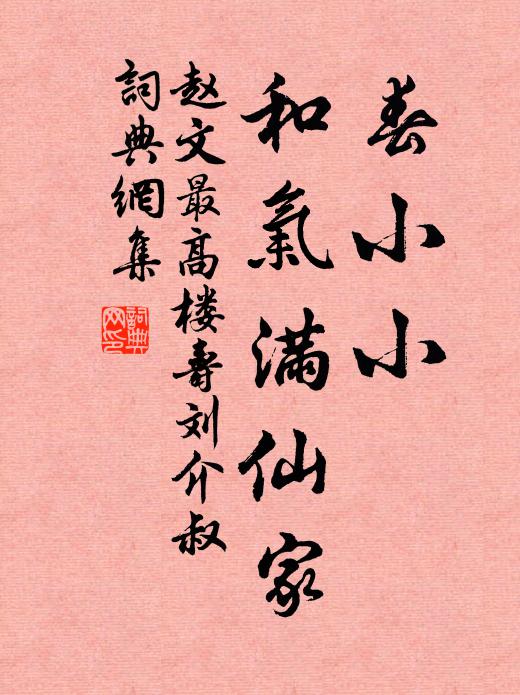 春小小
和氣满仙家
赵文最高楼壽刘介叔
詞典網集
詞典
网印